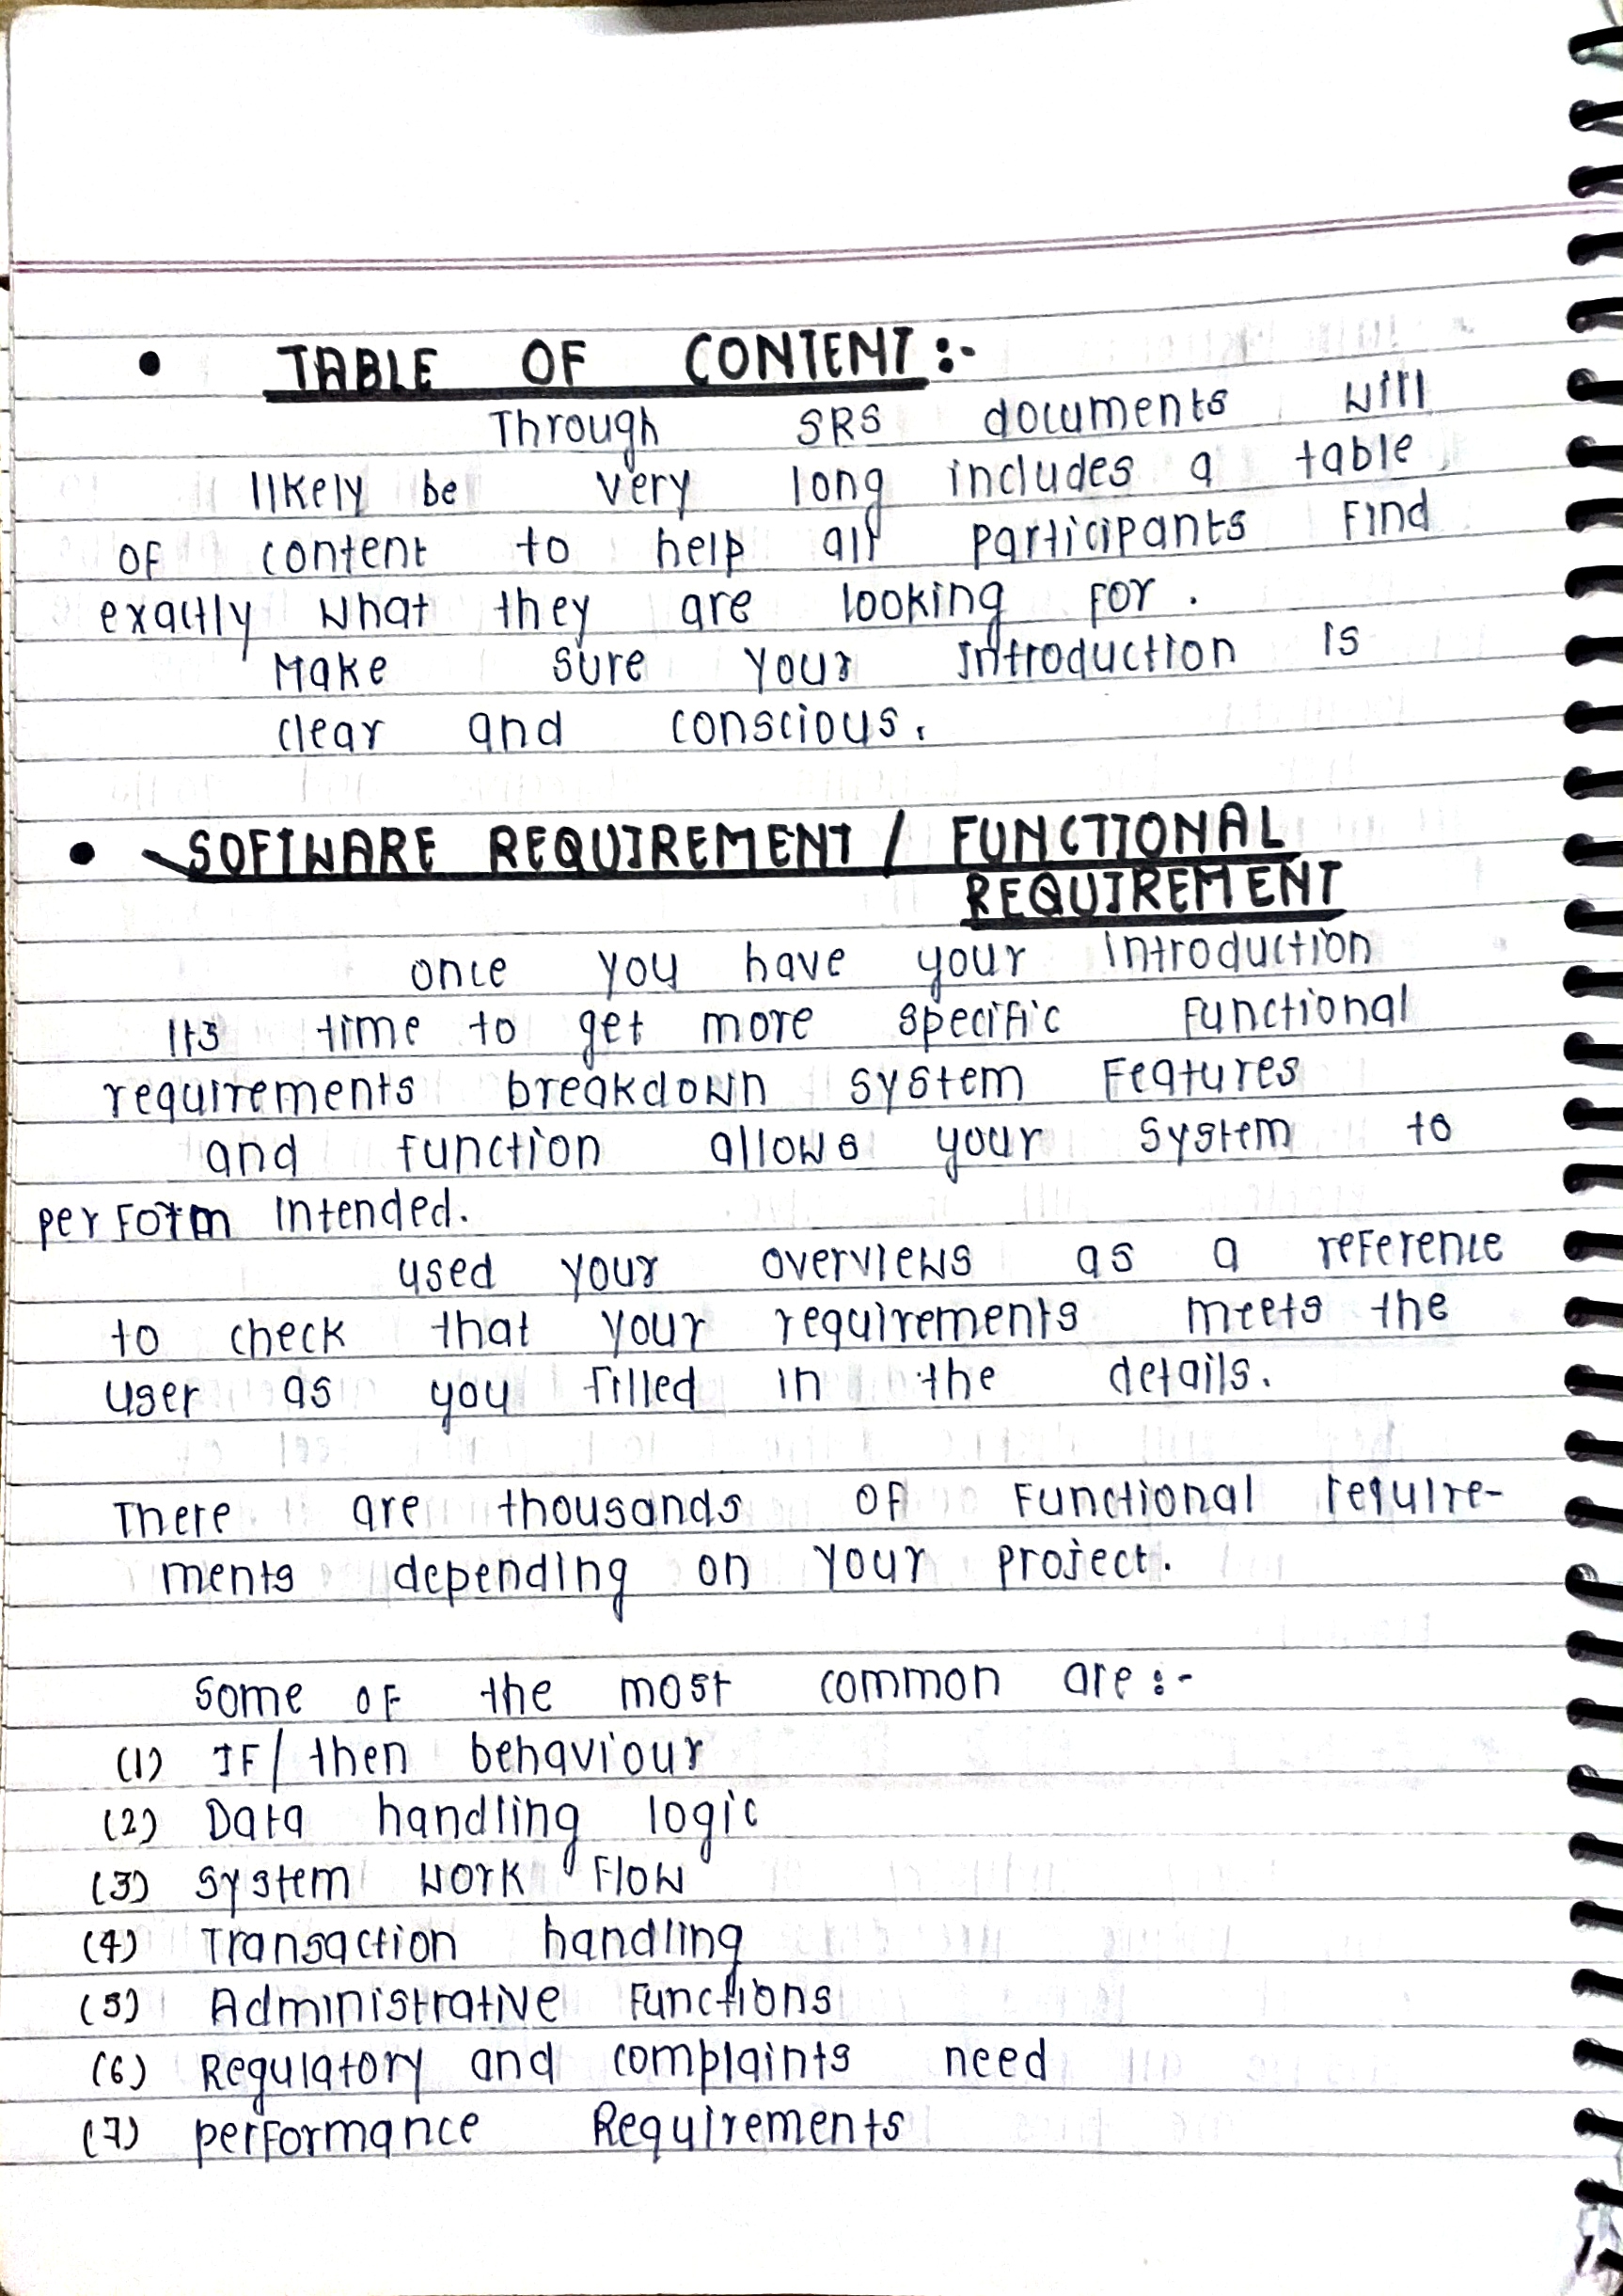 • TABLE OF CONTENT :-
Through SRS documents will
likely be very long includes a table
of content to help all participants find
exactly what they are looking for.
Make sure your introduction is
clear and conscious.
• SOFTWARE REQUIREMENT / FUNCTIONAL
REQUIREMENT
once you have your introduction
its time to get more specific functional
requirements breakdown system features
and function allows your system to
perform intended.
used your overviews as a reference
to check that your requirements meets the
user as you filled in the details.
There are thousands of functional require-
ments depending on your project.
some of the most common are :-
(1) IF / then behaviour
(2) Data handling logic
(3) system work flow
(4) Transaction handling
(5) Administrative functions
(6) Regulatory and complaints need
(7) performance Requirements